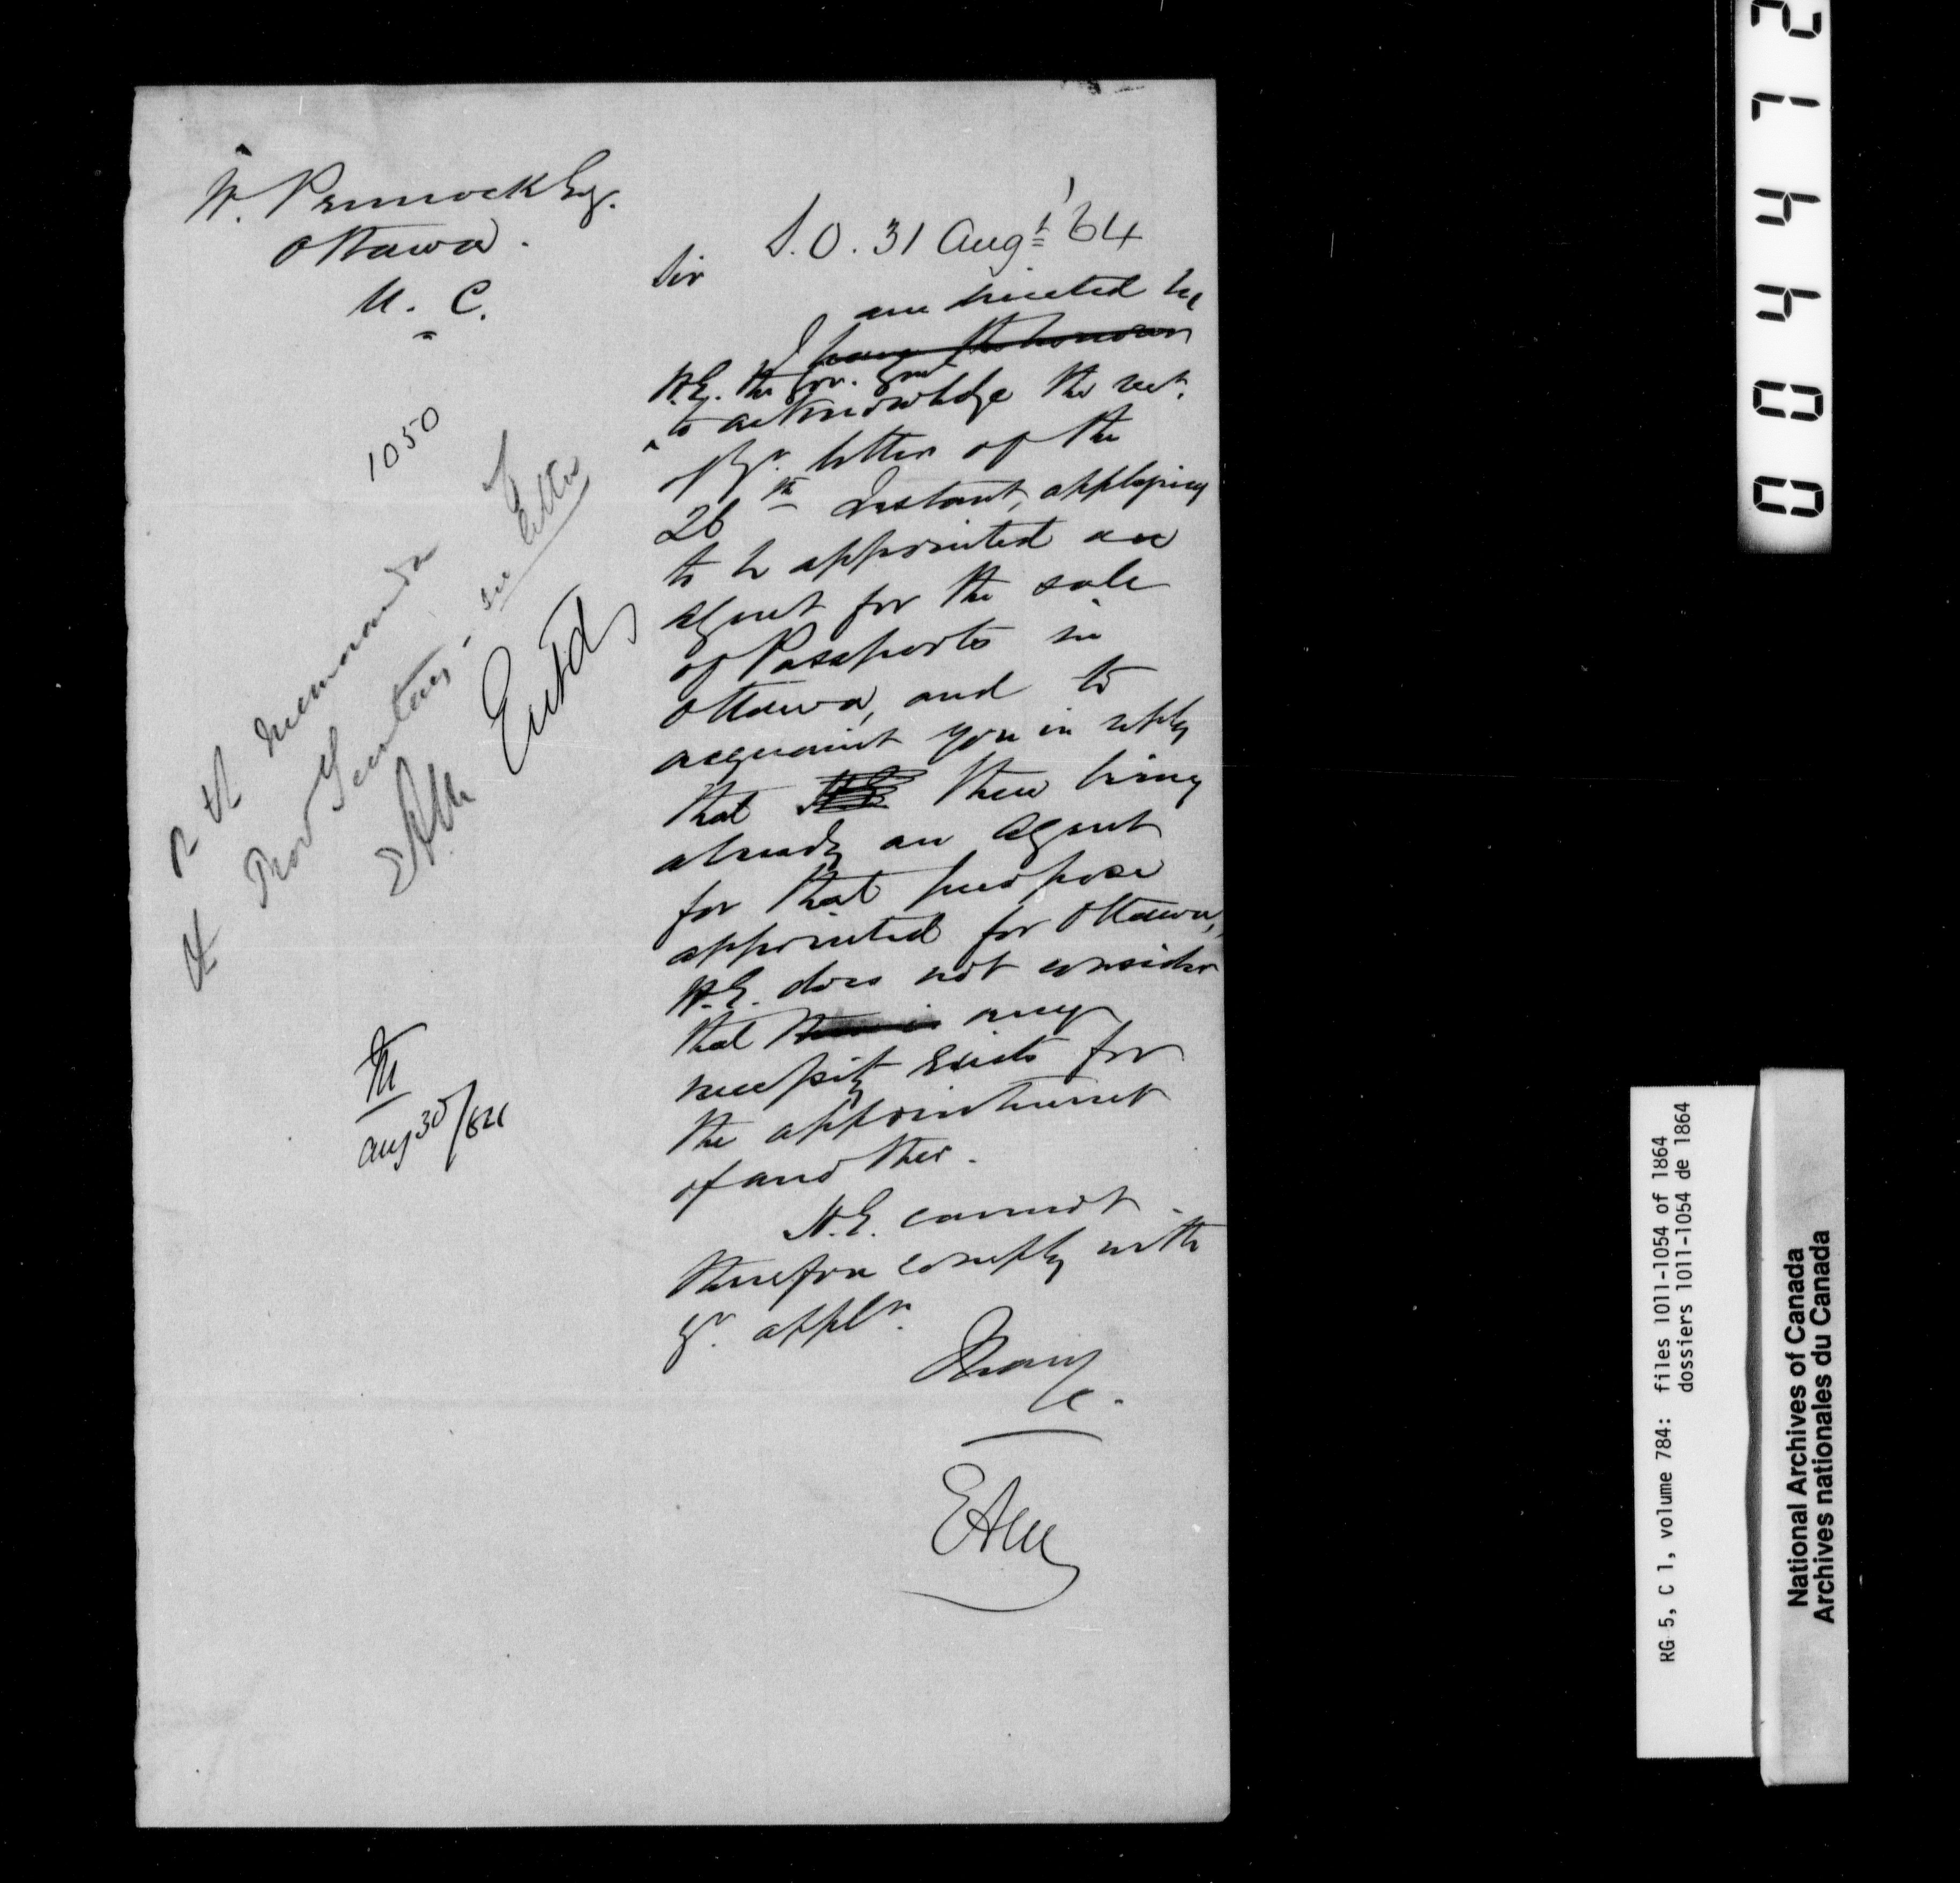 W. Pennock Esq.
Ottawa.
U. C.
S.O. 31 Augt '64
Sir
am directed by
I have the honour
H.E. the Gov. Genl
to acknowledge the rect.
of yr. letter of the
26th Instant, applying
to be appointed an
agent for the sale
of Passports in
Ottawa, and to
acquaint you in reply
that H.E. there being
already an Agent
for that purpose
appointed for Ottawa,
H.E. does not consider
that there is any
necessity exists for
the appointment
of another.
H.E. cannot
therefore comply with
yr. appln.
I have
&c.
EAM
1050
memoranda of
Prov Secretary - see letter
EAM
Entd
Aug 30/64
004472
RG 5, C 1, volume 784: files 1011-1054 of 1864
dossiers 1011-1054 de 1864
National Archives of Canada
Archives nationales du Canada